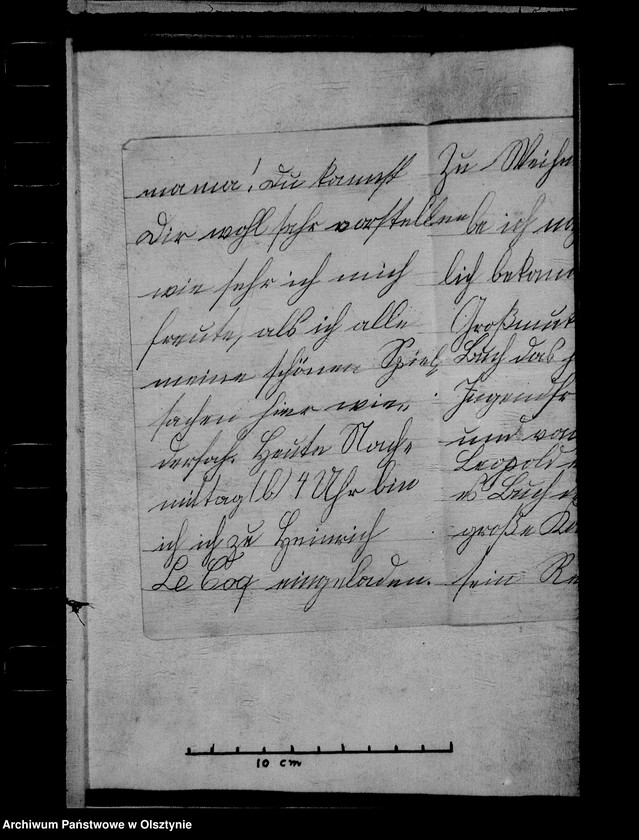 mama! Du kannst
Dir wohl sehr vorstellen
wie sehr ich mich
freute, als ich alle
meine schönen Spiel-
sachen hier wie-
dersah. Heute Nach-
mittag (6) 4 Uhr bin
ich ich zu Heinrich
Le Coq eingeladen.
Zu Weihn
be ich
lich bekom
Großmut
Buch das
und von
Leopold
es Buch
große
sein Re
10 cm
Archiwum Państwowe w Olsztynie